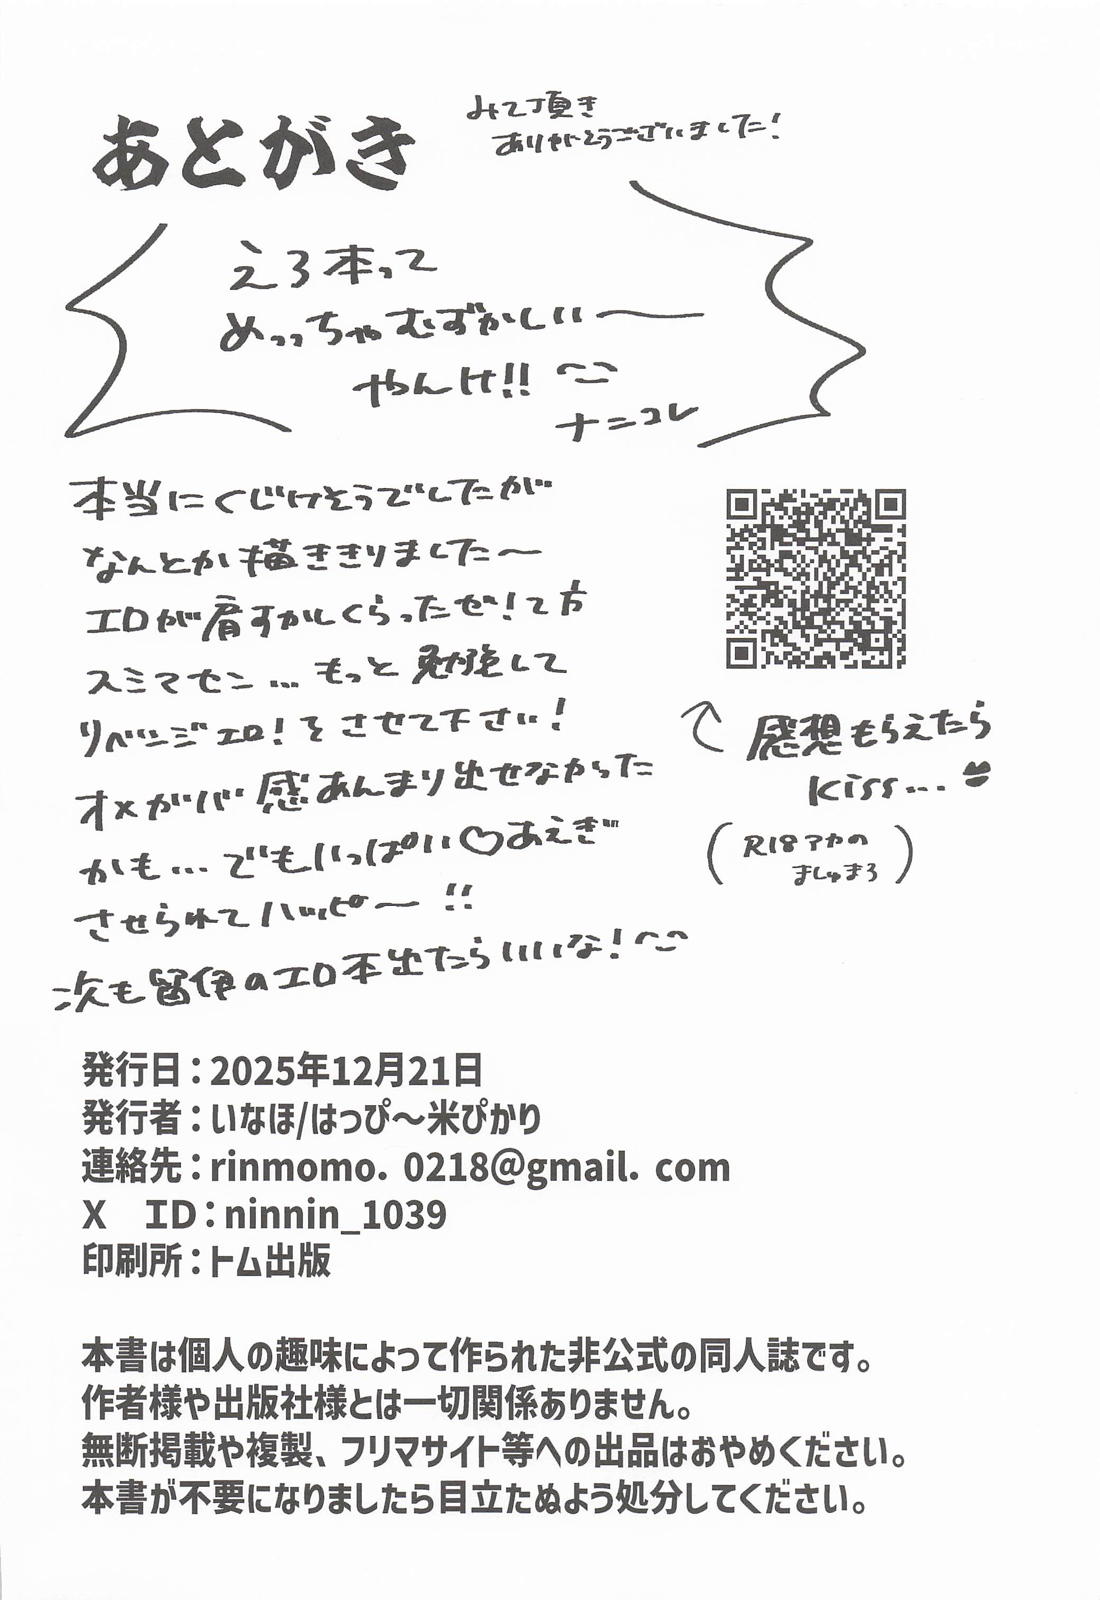 あとがき
みて頂き
ありがとうございました!
えろ本って
めっっちゃむずかしいー
やんけ!!
ナニコレ
本当にくじけそうでしたが
なんとか描ききりました〜
エロが肩すかしくらったぜ!て方
スミマセン…もっと勉強して
リベンジエロ!をさせて下さい!
オメガバ感あんまり出せなかった
かも…でもいっぱい♡あえぎ
させられてハッピー!!
次も留伊のエロ本出たらいいな!
感想もらえたら
kiss…
(R18アカの
ましゅまろ)
発行日:2025年12月21日
発行者:いなほ/はっぴ〜米ぴかり
連絡先:rinmomo. 0218@gmail. com
X ID:ninnin_1039
印刷所:トム出版
本書は個人の趣味によって作られた非公式の同人誌です。
作者様や出版社様とは一切関係ありません。
無断掲載や複製、フリマサイト等への出品はおやめください。
本書が不要になりましたら目立たぬよう処分してください。